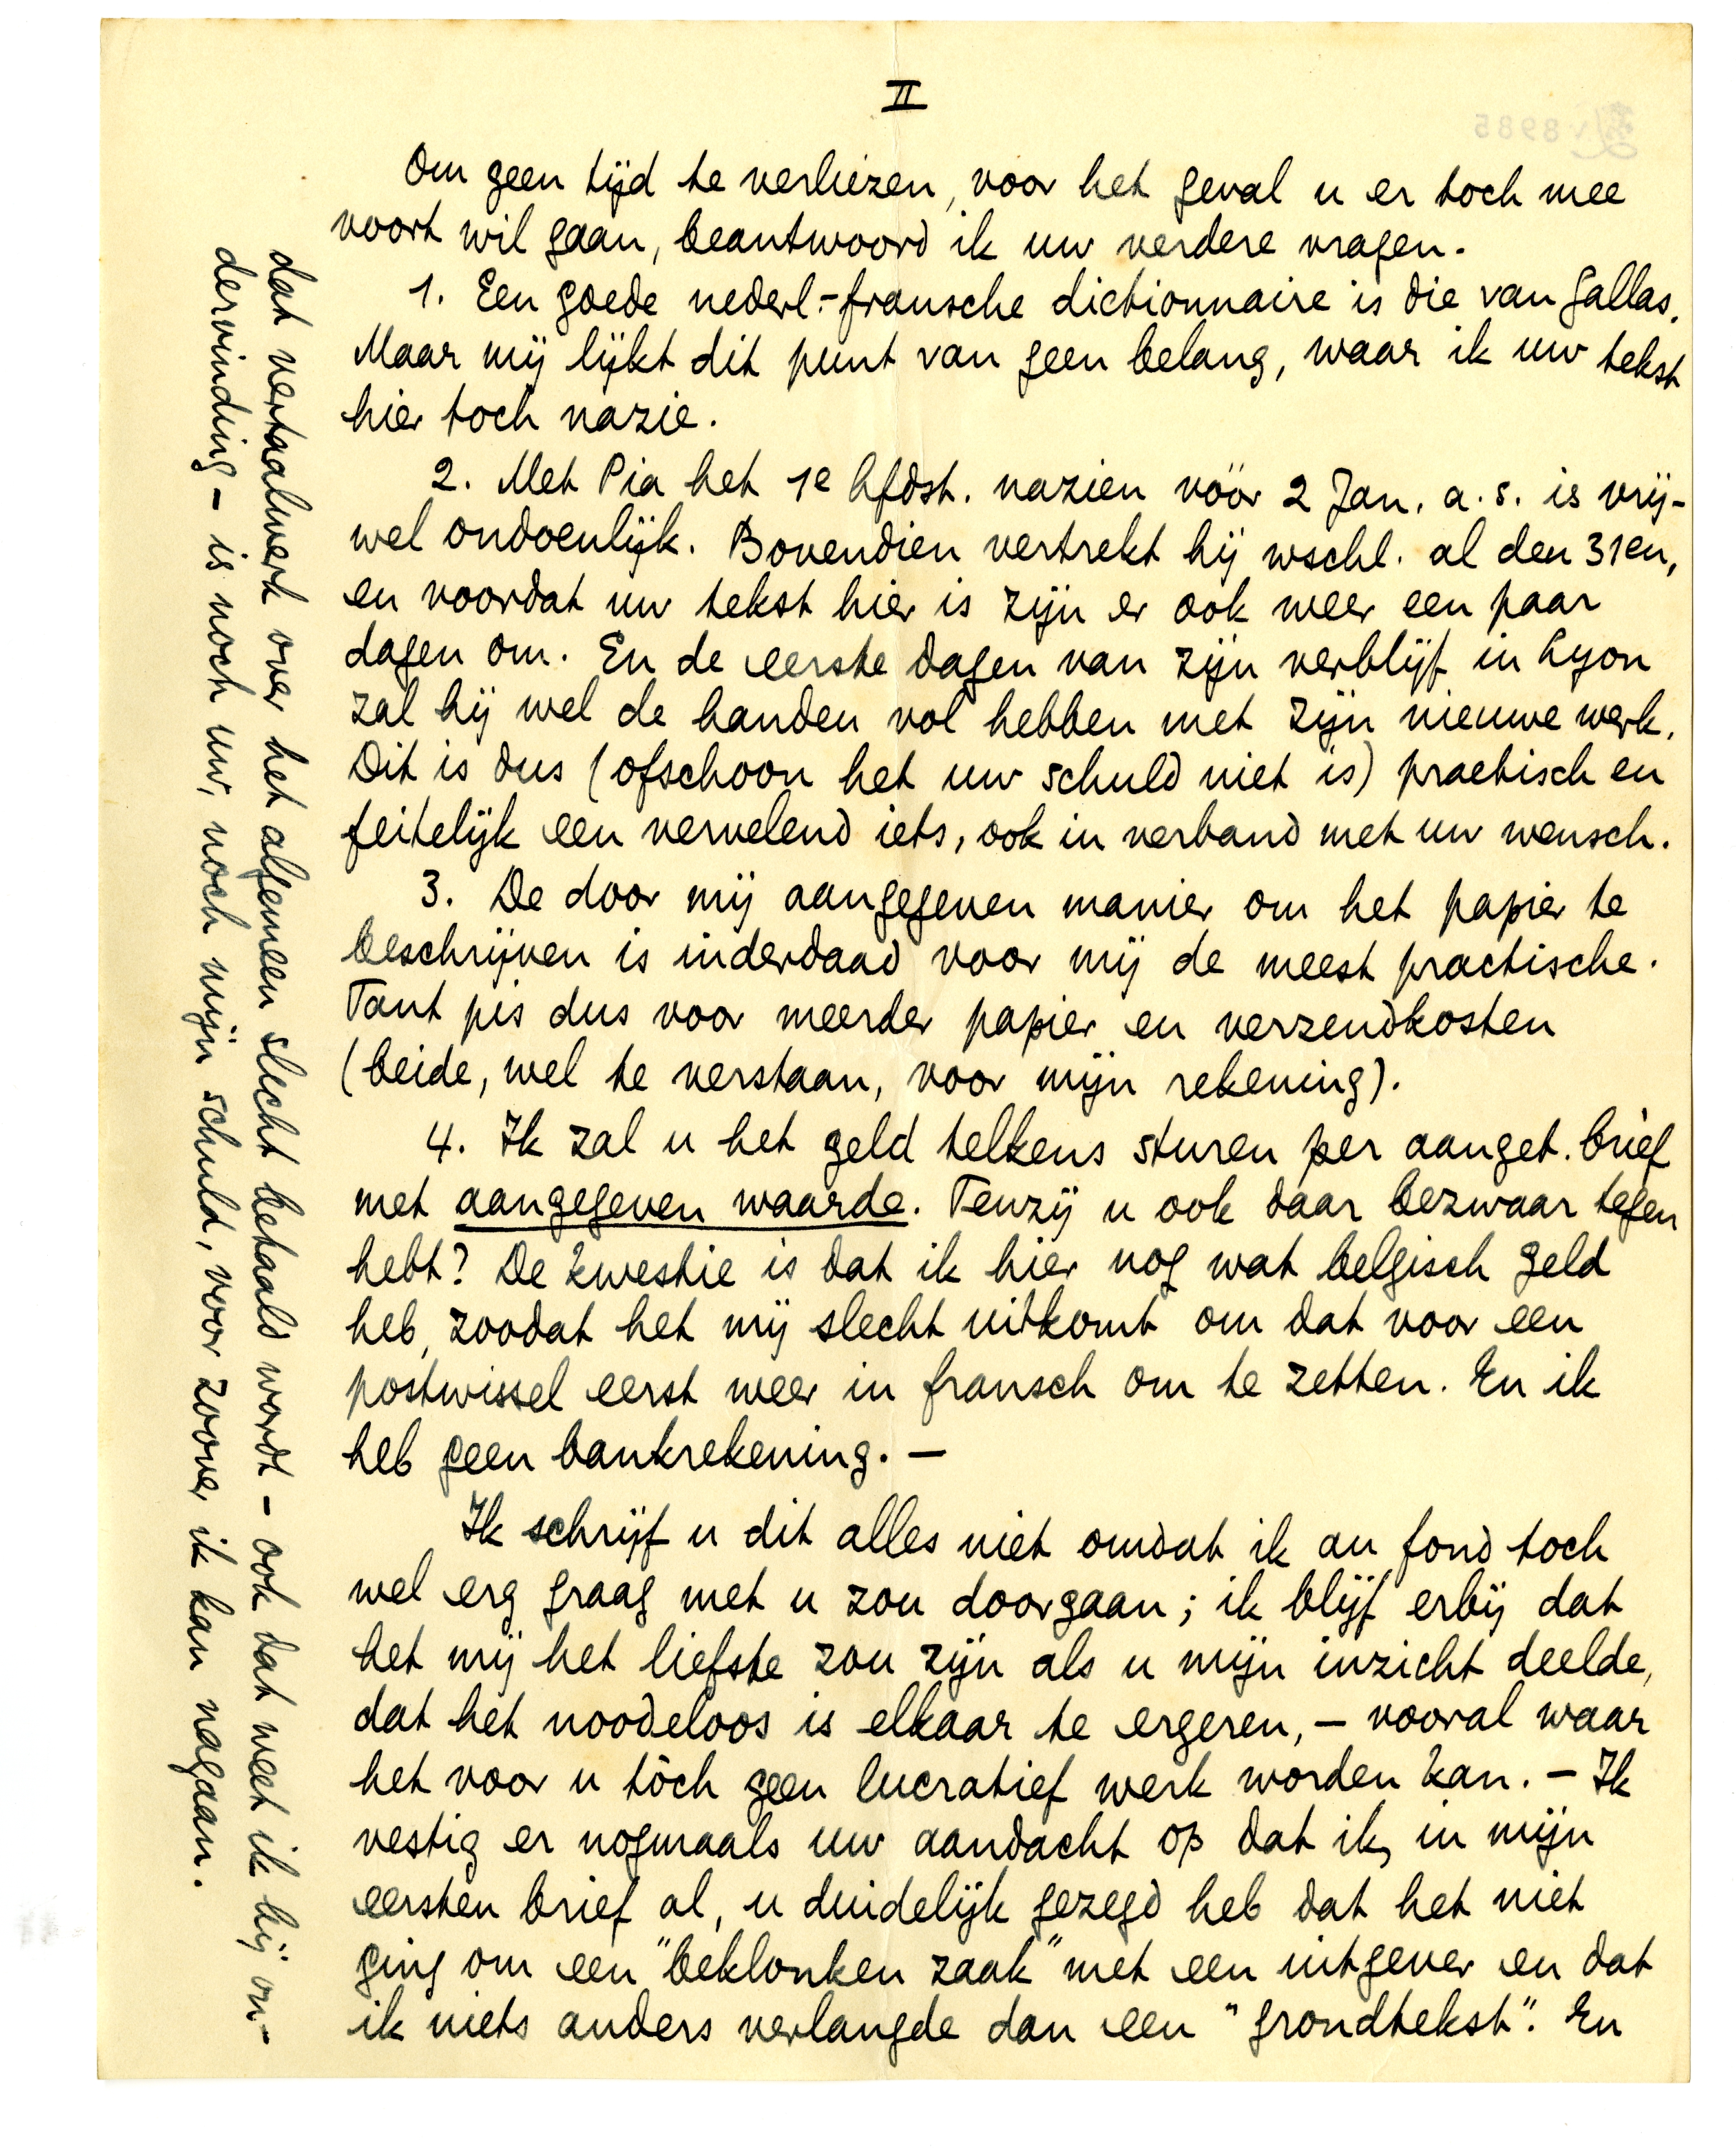 II
Om geen tijd te verliezen, voor het geval u er toch mee
voort wil gaan, beantwoord ik uw verdere vragen.
1. Een goede nederl.-fransche dictionnaire is die van Gallas.
Maar mij lijkt dit punt van geen belang, waar ik uw tekst
hier toch nazie.
2. Met Pia het 1e hfdst. nazien vóór 2 Jan. a.s. is vrij-
wel ondoenlijk. Bovendien vertrekt hij wschl. al den 31en,
en voordat uw tekst hier is zijn er ook weer een paar
dagen om. En de eerste dagen van zijn verblijf in Lyon
zal hij wel de handen vol hebben met zijn nieuwe werk.
Dit is dus (ofschoon het uw schuld niet is) practisch en
feitelijk een vervelend iets, ook in verband met uw wensch.
3. De door mij aangegeven manier om het papier te
beschrijven is inderdaad voor mij de meest practische.
Tant pis dus voor meerder papier en verzendkosten
(beide, wel te verstaan, voor mijn rekening).
4. Ik zal u het geld telkens sturen per aanget. brief
met aangegeven waarde. Tenzij u ook daar bezwaar tegen
hebt? De kwestie is dat ik hier nog wat belgisch geld
heb, zoodat het mij slecht uitkomt om dat voor een
postwissel eerst weer in fransch om te zetten. En ik
heb geen bankrekening. –
Ik schrijf u dit alles niet omdat ik au fond toch
wel erg graag met u zou doorgaan; ik blijf erbij dat
het mij het liefste zou zijn als u mijn inzicht deelde,
dat het noodeloos is elkaar te ergeren, – vooral waar
het voor u tòch geen lucratief werk worden kan. – Ik
vestig er nogmaals uw aandacht op dat ik, in mijn
eersten brief al, u duidelijk gezegd heb dat het niet
ging om een "beklonken zaak" met een uitgever en dat
ik niets anders verlangde dan een "grondtekst". En
dat vertaalwerk over het algemeen slecht betaald wordt – ook dat weet ik bij on-
dervinding – is noch uw, noch mijn schuld, voor zoover ik kan nagaan.
8985